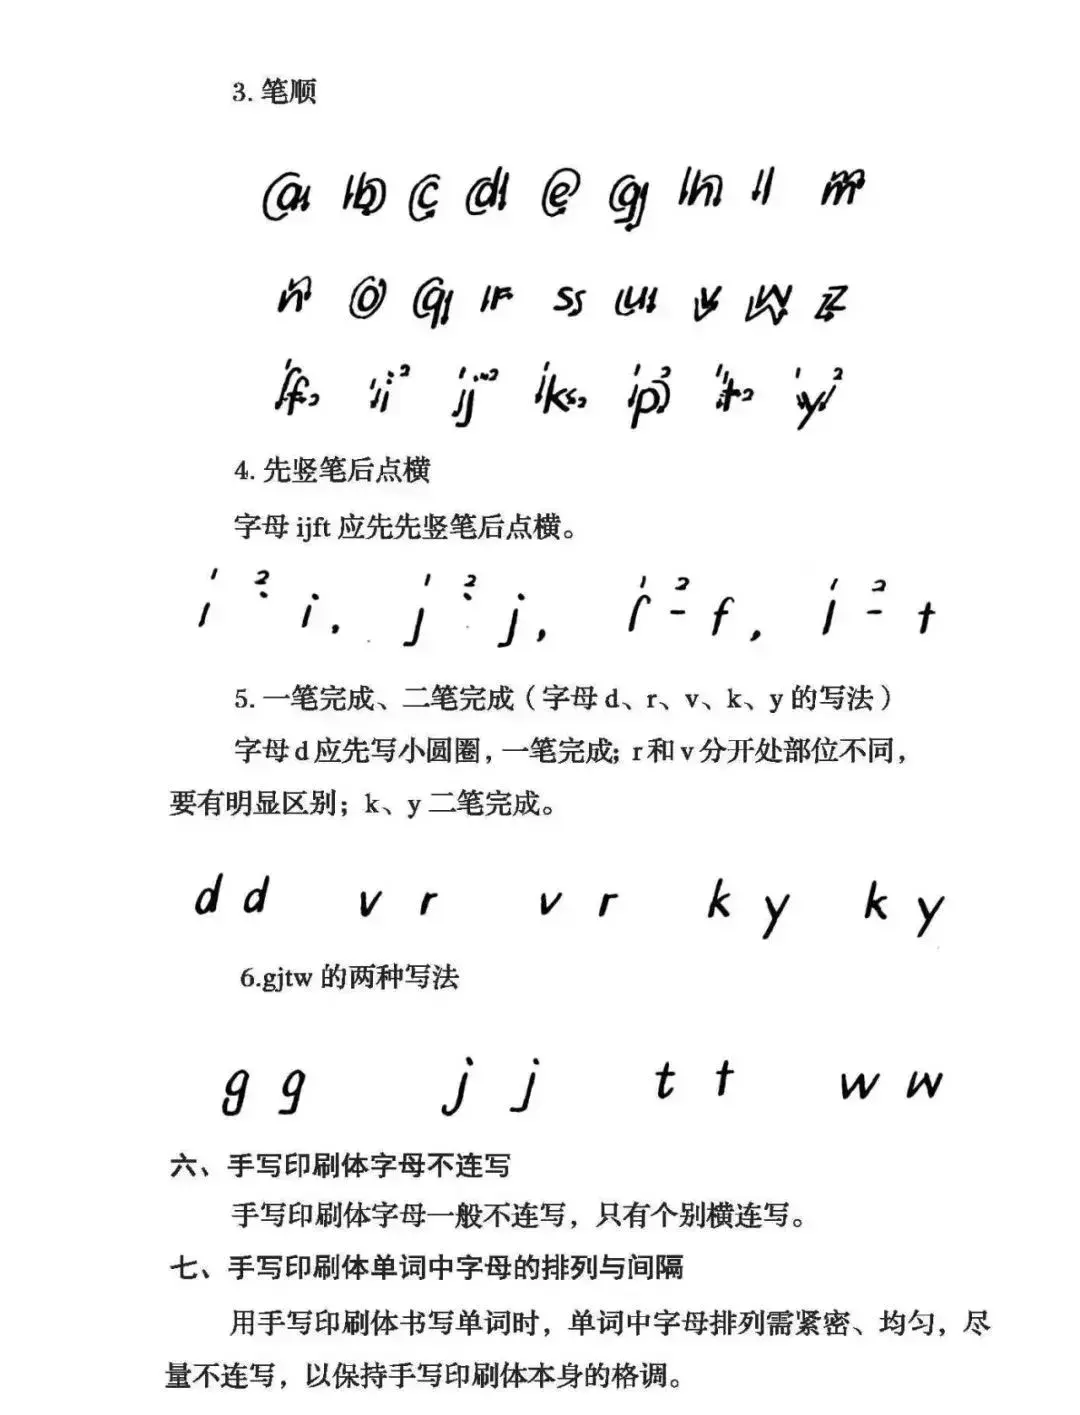 3. 笔顺
a b c d e g h l m
n o q r s u v w z
1 1 2 1 2 1 2 1 2 1 2 1 2
f i j k p t y
4. 先竖笔后点横
字母 ijft 应先先竖笔后点横。
1 2 1 2 1 2 1 2
ı · i, ȷ · j, ſ - f, l - t
5. 一笔完成、二笔完成（字母 d、r、v、k、y 的写法）
字母 d 应先写小圆圈，一笔完成; r 和 v 分开处部位不同，
要有明显区别；k、y 二笔完成。
d d v r v r k y k y
6.gjtw 的两种写法
g g j j t t w w
六、手写印刷体字母不连写
手写印刷体字母一般不连写，只有个别横连写。
七、手写印刷体单词中字母的排列与间隔
用手写印刷体书写单词时，单词中字母排列需紧密、均匀，尽
量不连写，以保持手写印刷体本身的格调。